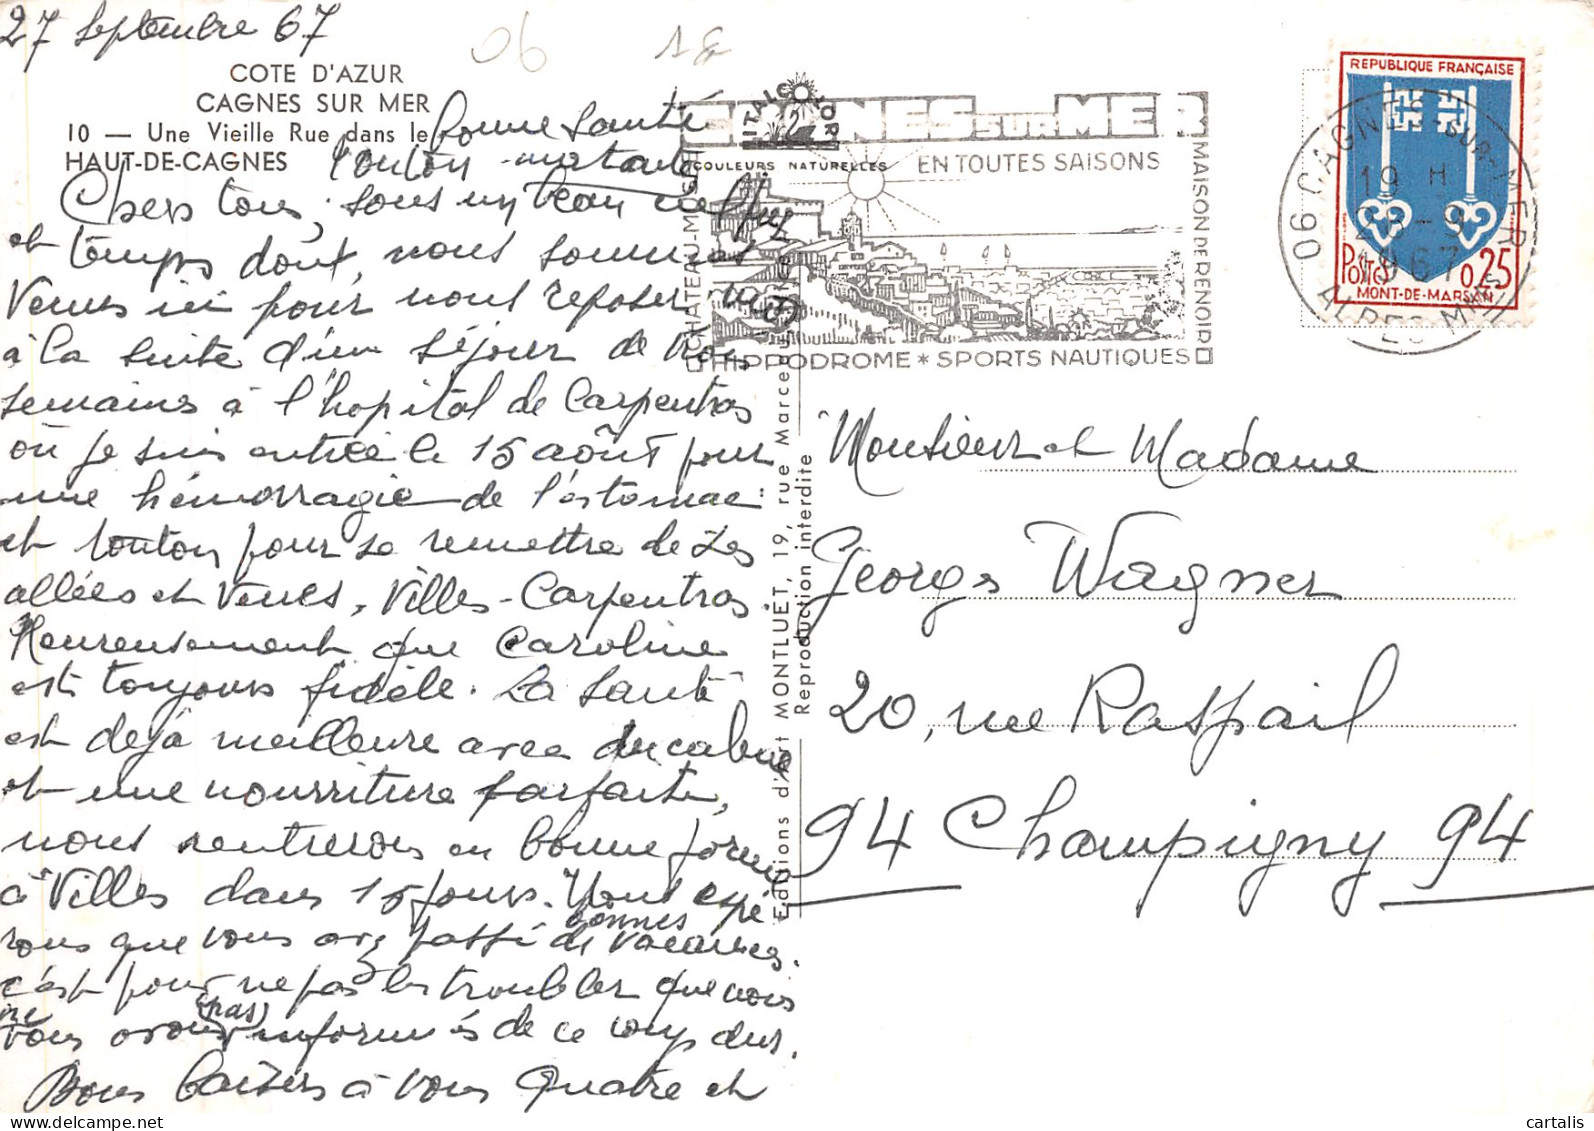 27 Septembre 67
06
COTE D'AZUR
CAGNES SUR MER
10 — Une Vieille Rue dans le
HAUT-DE-CAGNES
Chers tous, sous un beau
et temps dont, nous sommes
venus ici pour nous reposer
à la suite d'un séjour de trois
semaines à l'hopital de Carpentras
où je suis entrée le 15 août pour
une hémorragie de l'estomac
et tonton pour se remettre de ses
allées et venues, Villes-Carpentras.
Heureusement que Caroline
est toujours fidèle. La santé
est déjà meilleure avec du calme
et une nourriture parfaite,
nous rentrerons en bonne forme
à Villes dans 15 jours. Nous espé
rons que vous avez passé de bonnes vacances.
c'est pour ne pas les troubler que nous
ne vous avons (pas) informés de ce coup dur.
Bons baisers à vous quatre et
bonne santé
tonton tata
ITALCOLOR
COULEURS NATURELLES
CAGNES SUR MER
EN TOUTES SAISONS
CHATEAU-MUSÉE
MAISON DE RENOIR
HIPPODROME * SPORTS NAUTIQUES
Editions d'Art MONTLUET, 19, rue Marce
Reproduction interdite
REPUBLIQUE FRANÇAISE
POSTES 0,25
MONT-DE-MARSAN
06 CAGNES-SUR-MER
19 H
-9
1967
ALPES MARIT
Monsieur et Madame
Georges Wagner
20, rue Raspail
94 Champigny 94
cartalis
delcampe.net